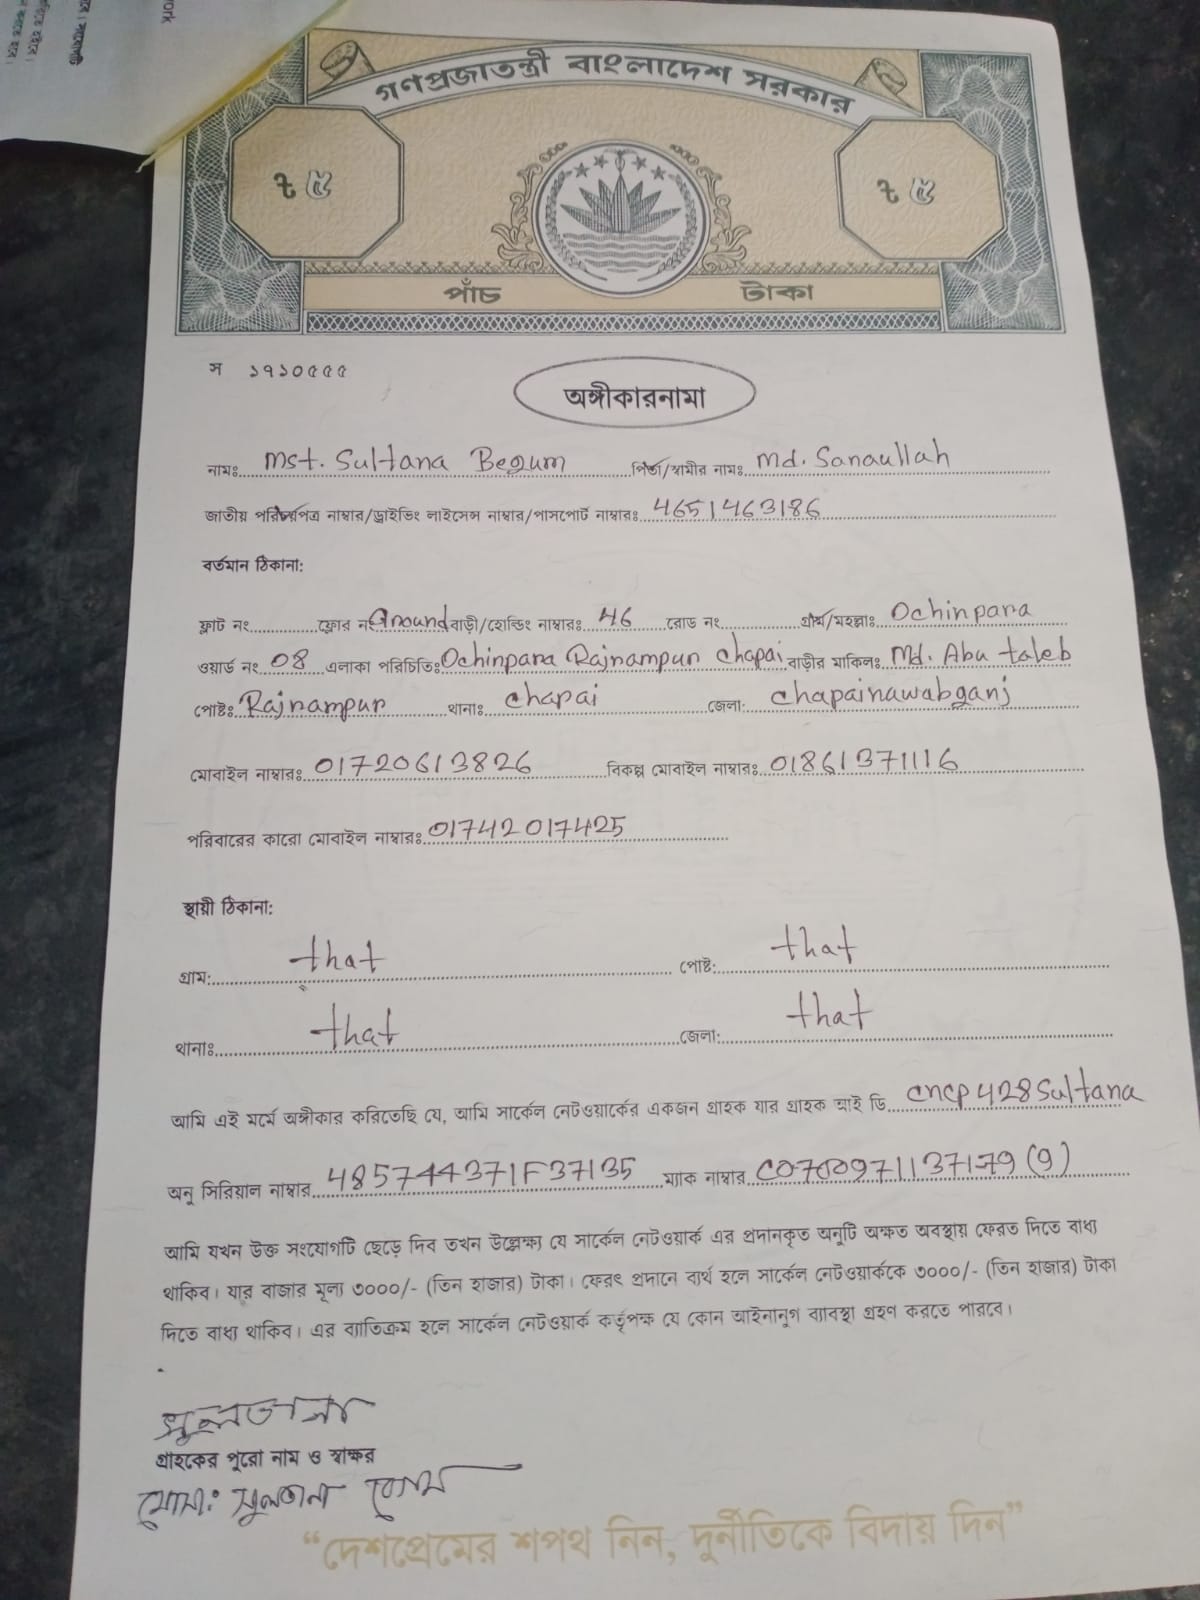 গণপ্রজাতন্ত্রী বাংলাদেশ সরকার
৳ ৫ ৳ ৫
পাঁচ টাকা
স ১৭১০৫৫৫
অঙ্গীকারনামা
নামঃ Mst. Sultana Begum পিতা/স্বামীর নামঃ Md. Sanaullah
জাতীয় পরিচয়পত্র নাম্বার/ড্রাইভিং লাইসেন্স নাম্বার/পাসপোর্ট নাম্বারঃ 4651463186
বর্তমান ঠিকানা:
ফ্লাট নং ফ্লোর নং Ground বাড়ী/হোল্ডিং নাম্বারঃ 46 রোড নং গ্রাম/মহল্লাঃ Ochinpara
ওয়ার্ড নং 08 এলাকা পরিচিতিঃ Ochinpara Rajrampur Chapai বাড়ীর মালিকঃ Md. Abu taleb
পোষ্টঃ Rajrampur থানাঃ Chapai জেলা: Chapainawabganj
মোবাইল নাম্বারঃ 01720613826 বিকল্প মোবাইল নাম্বারঃ 01861371116
পরিবারের কারো মোবাইল নাম্বারঃ 01742017425
স্থায়ী ঠিকানা:
গ্রাম: that পোষ্ট: that
থানাঃ that জেলা: that
আমি এই মর্মে অঙ্গীকার করিতেছি যে, আমি সার্কেল নেটওয়ার্কের একজন গ্রাহক যার গ্রাহক আই ডি cncp428Sultana
অনু সিরিয়াল নাম্বার 485744371F37135 ম্যাক নাম্বার (9)
আমি যখন উক্ত সংযোগটি ছেড়ে দিব তখন উল্লেক্ষ্য যে সার্কেল নেটওয়ার্ক এর প্রদানকৃত অনুটি অক্ষত অবস্থায় ফেরত দিতে বাধ্য
থাকিব। যার বাজার মূল্য ৩০০০/- (তিন হাজার) টাকা। ফেরৎ প্রদানে ব্যর্থ হলে সার্কেল নেটওয়ার্ককে ৩০০০/- (তিন হাজার) টাকা
দিতে বাধ্য থাকিব। এর ব্যাতিক্রম হলে সার্কেল নেটওয়ার্ক কর্তৃপক্ষ যে কোন আইনানুগ ব্যাবস্থা গ্রহণ করতে পারবে।
সুলতানা
গ্রাহকের পুরো নাম ও স্বাক্ষর
মোসাঃ সুলতানা বেগম
“দেশপ্রেমের শপথ নিন, দুর্নীতিকে বিদায় দিন”